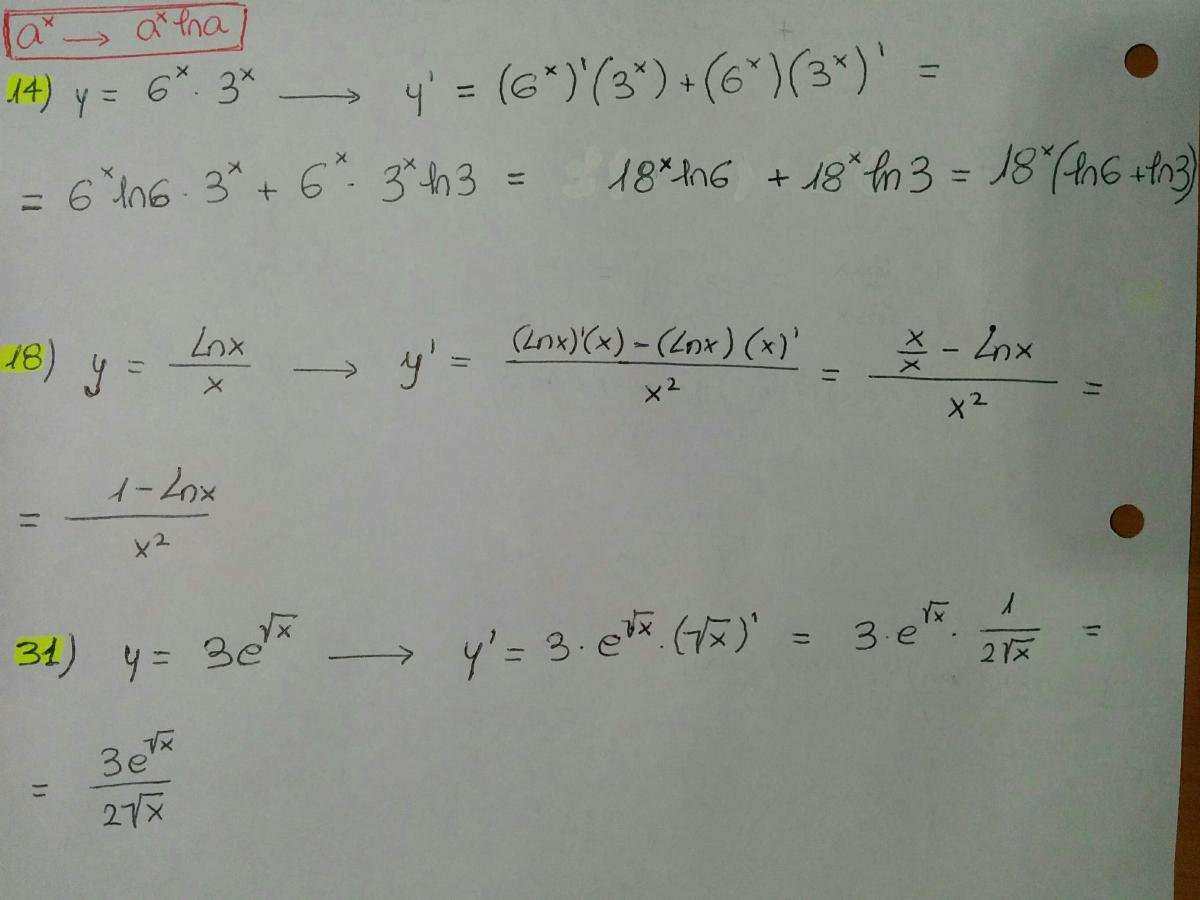 aˣ → aˣ lna
14) y = 6ˣ · 3ˣ → y' = (6ˣ)'(3ˣ) + (6ˣ)(3ˣ)' =
= 6ˣ ln6 · 3ˣ + 6ˣ · 3ˣ ln3 = 18ˣ ln6 + 18ˣ ln3 = 18ˣ(ln6 + ln3)
18) y = Lnx/x → y' = ((Lnx)'(x) - (Lnx)(x)')/x² = (x/x - Lnx)/x² =
= (1 - Lnx)/x²
31) y = 3e^√x → y' = 3 · e^√x · (√x)' = 3 · e^√x · 1/(2√x) =
= 3e^√x/(2√x)